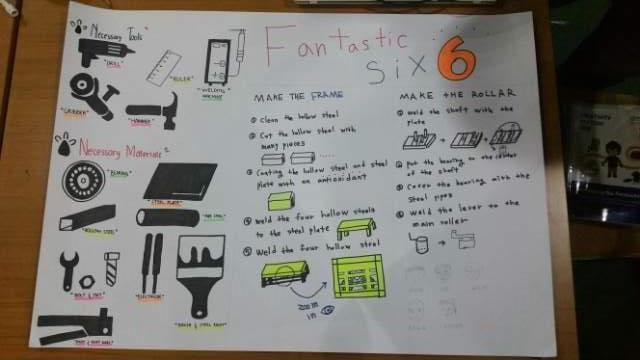 Fantastic
six 6
Necessary Tools
"DRILL"
"RULER"
"WELDING
MACHINE"
"GRINDER"
"HAMMER"
Necessary Materials
"BEARING"
"STEEL PLATE"
"HOLLOW STEEL"
"BOLT & NUT"
"ELECTRODE"
MAKE THE FRAME
① Clean the hollow steel
② Cut the hollow steel with
many pieces
③ Coating the hollow steel and steel
plate with an antioxidant
④ Weld the four hollow steels
to the steel plate
⑤ Weld the four hollow steel
ZOOM
IN
MAKE THE ROLLAR
① Weld the shaft with the
plate
② Put the bearing on the center
of the shaft
③ Cover the bearing with the
steel pipes
④ Weld the lever to the
main roller